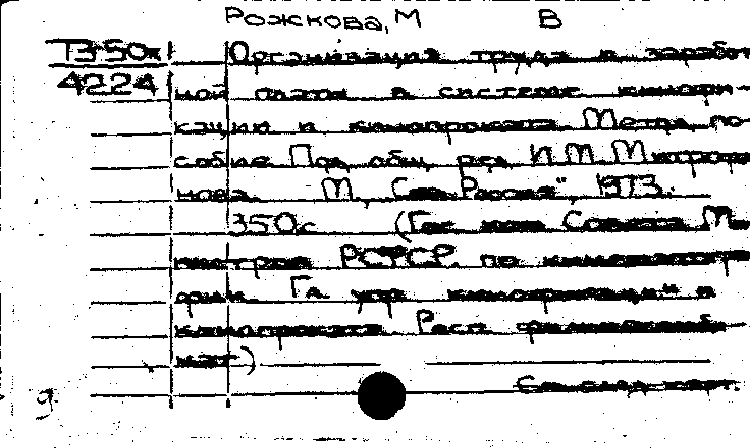 Рожкова, М В
Т3-50к Организация труда и заработ
4224 ной платы в системе кинофи-
кации и кинопроката Метод. по-
собие Под общ. ред. И. М. Митрофа
нова. М., "Сов. Россия", 1973.
350с. (Гос. ком. Совета Ми
нистров РСФСР по кинематогра
фии. Гл. упр. кинофикации и
кинопроката. Респ. фильмо
кат)
См. след. карт.